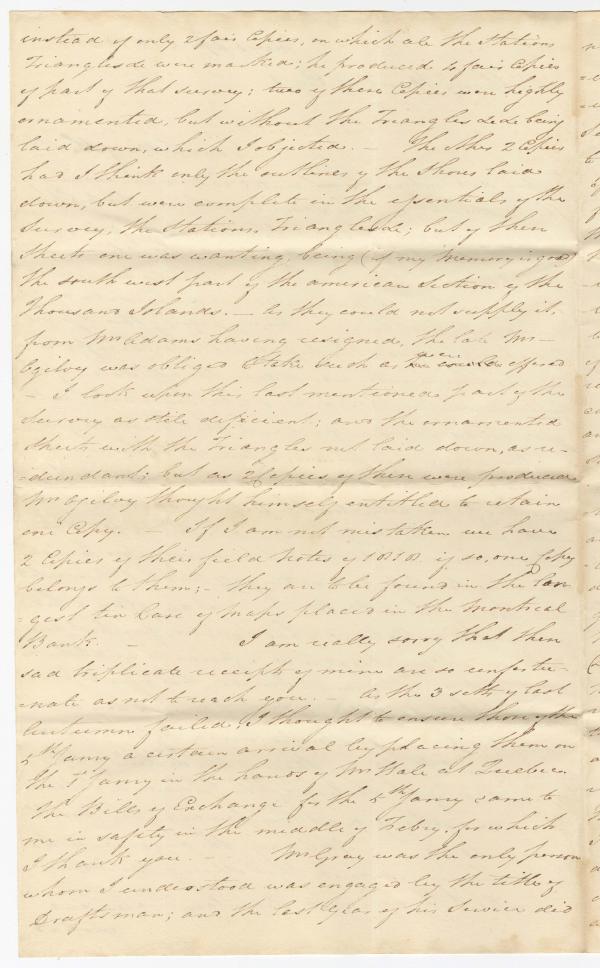 instead of only 2 fair Copies, on which all the Stations
Triangles &c were marked; he produced 4 fair Copies
of part of that survey; two of these Copies were highly
ornamented, but without the Triangles &c &c being
laid down, which I objected. — The other 2 Copies
had I think only the outlines of the Shores laid
down, but were complete in the essentials of the
Survey, the Stations, Triangles &c; but of these
sheets one was wanting, being (if my memory is good)
the south west part of the american Section of the
Thousand Islands. — As they could not supply it,
from Mr Adams having resigned, the late Mr —
Ogilvy was obliged to take such as were offered
— I look upon this last mentioned part of the
Survey as still deficient; and the ornamented
sheets with the Triangles not laid down, as re-
-dundant; but as 2 Copies of these were produced
Mr Ogilvy thought himself entitled to retain
one Copy. — If I am not mistaken we have
2 Copies of their field Notes of 1818 if so, one Copy
belongs to them; — they are to be found in the lar-
-gest tin Case of Maps placed in the Montreal
Bank. — I am really sorry that these
sad triplicate receipts of mine are so unfortu-
-nate as not to reach you. — As the 3 setts of last
Autumn failed, I thought to ensure those of the
5th Janry a certain arrival by placing them on
the 7th Janry in the hands of Mr Hale at Quebec.
The Bills of Exchange for the 5th Janry came to
me in safety in the middle of Febry. for which
I thank you. — Mr Gray was the only person
whom I understood was engaged by the title of
Draftsman; and the last year of his Service did